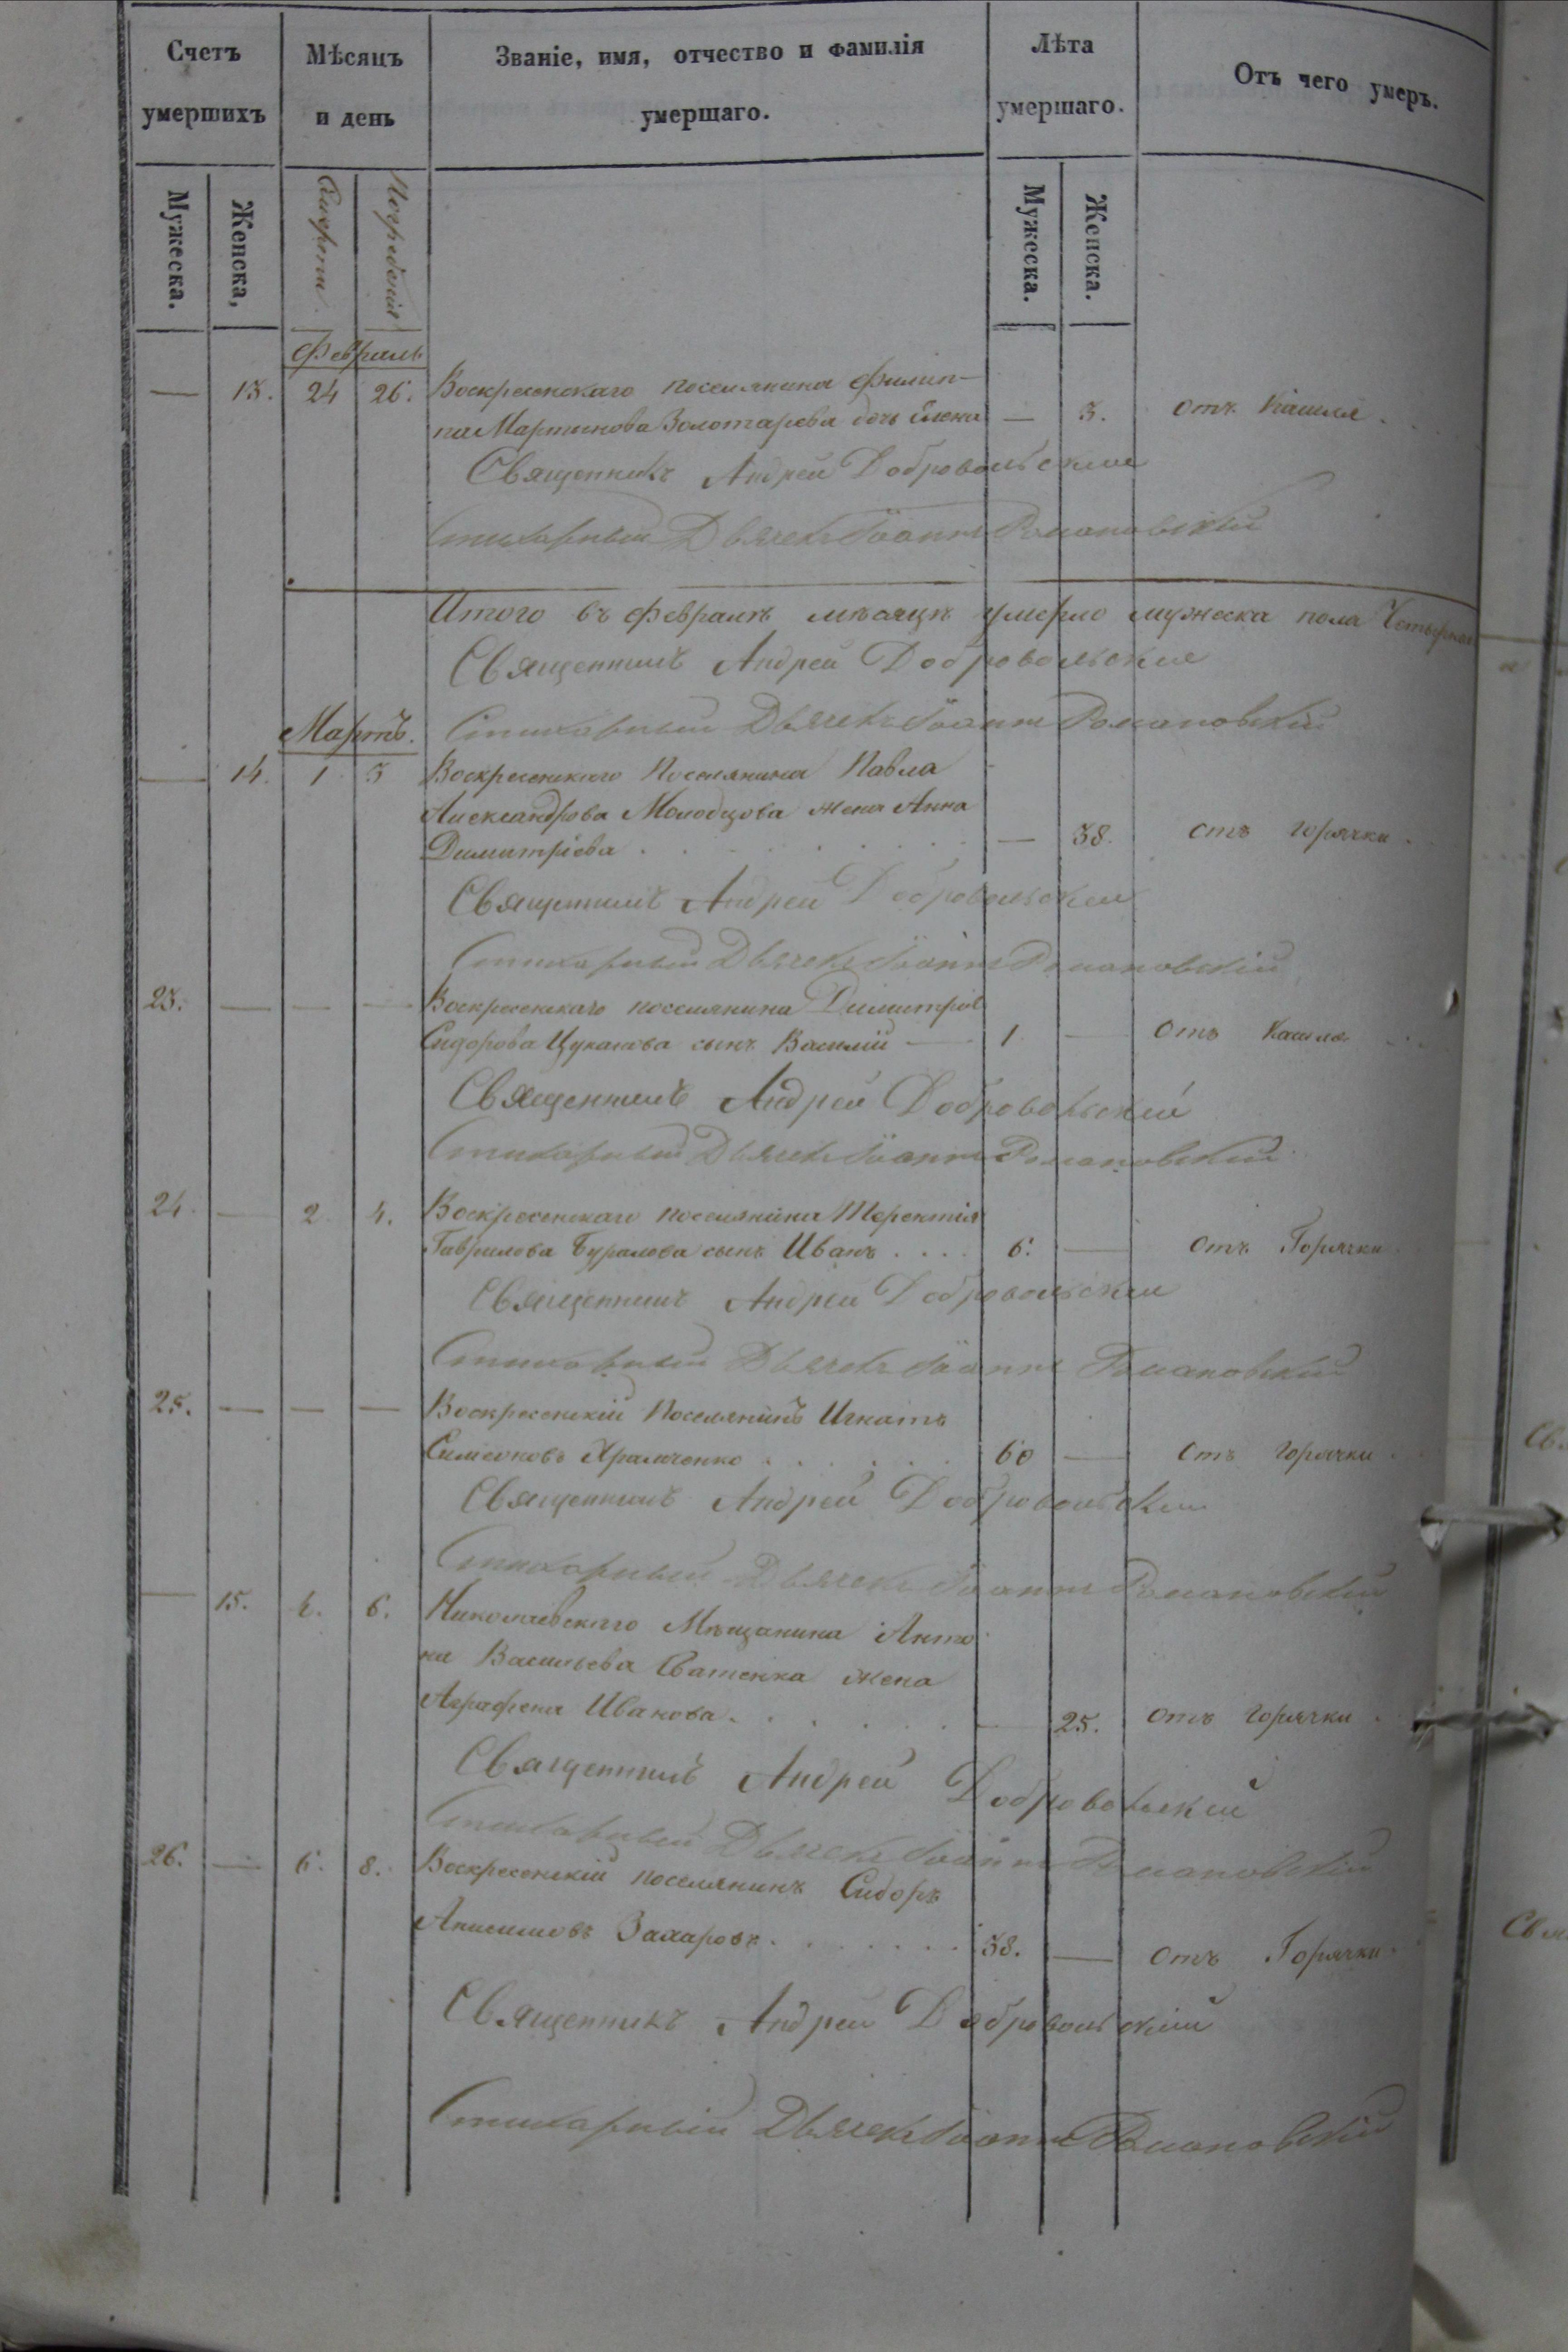 Счетъ умершихъ
Мѣсяцъ и день
Званіе, имя, отчество и фамилія умершаго.
Лѣта умершаго.
Отъ чего умеръ.
Мужеска. Женска, Смерти. Погребенія Мужеска. Женска.
Февраль
— 13. 24 26. Воскресенскаго поселянина Филип-
па Мартынова Золотарева дочь Елена — 3. отъ Кашля.
Священникъ Андрей Добровольскій
Стихарный Дьячекъ Іоаннъ Романовскій
Итого въ Февралѣ мѣсяцѣ умерло мужеска пола
Священникъ Андрей Добровольскій
Мартъ. Стихарный Дьячекъ Іоаннъ Романовскій
— 14. 1 3 Воскресенскаго Поселянина Павла
Александрова Молодцова жена Анна
Димитріева . . . . . . — 38. отъ горячки.
Священникъ Андрей Добровольскій
Стихарный Дьячекъ Іоаннъ Романовскій
23. — — — Воскресенскаго поселянина Димитрія
Сидорова Цуканова сынъ Василій — 1 — Отъ Кашля
Священникъ Андрей Добровольскій
Стихарный Дьячекъ Іоаннъ Романовскій
24 — 2 4. Воскресенскаго поселянина Терентія
Гаврилова Буралова сынъ Иванъ . . . . 6. — Отъ Горячки
Священникъ Андрей Добровольскій
Стихарный Дьячекъ Іоаннъ Романовскій
25. — — — Воскресенскій Поселянинъ Игнатъ
Симеоновъ Храмченко . . . . . . 60 — Отъ горячки.
Священникъ Андрей Добровольскій
Стихарный Дьячекъ Іоаннъ Романовскій
— 15. 4. 6. Николаевскаго Мѣщанина Анто
на Васильева Сватенка жена
Аграфена Иванова. . . . . . — 25. Отъ горячки.
Священникъ Андрей Добровольскій
Стихарный Дьячекъ Іоаннъ Романовскій
26. — 6. 8. Воскресенскій поселянинъ Сидоръ
Анисимовъ Захаровъ. . . . . . . . 38. — Отъ Горячки.
Священникъ Андрей Добровольскій
Стихарный Дьячекъ Іоаннъ Романовскій